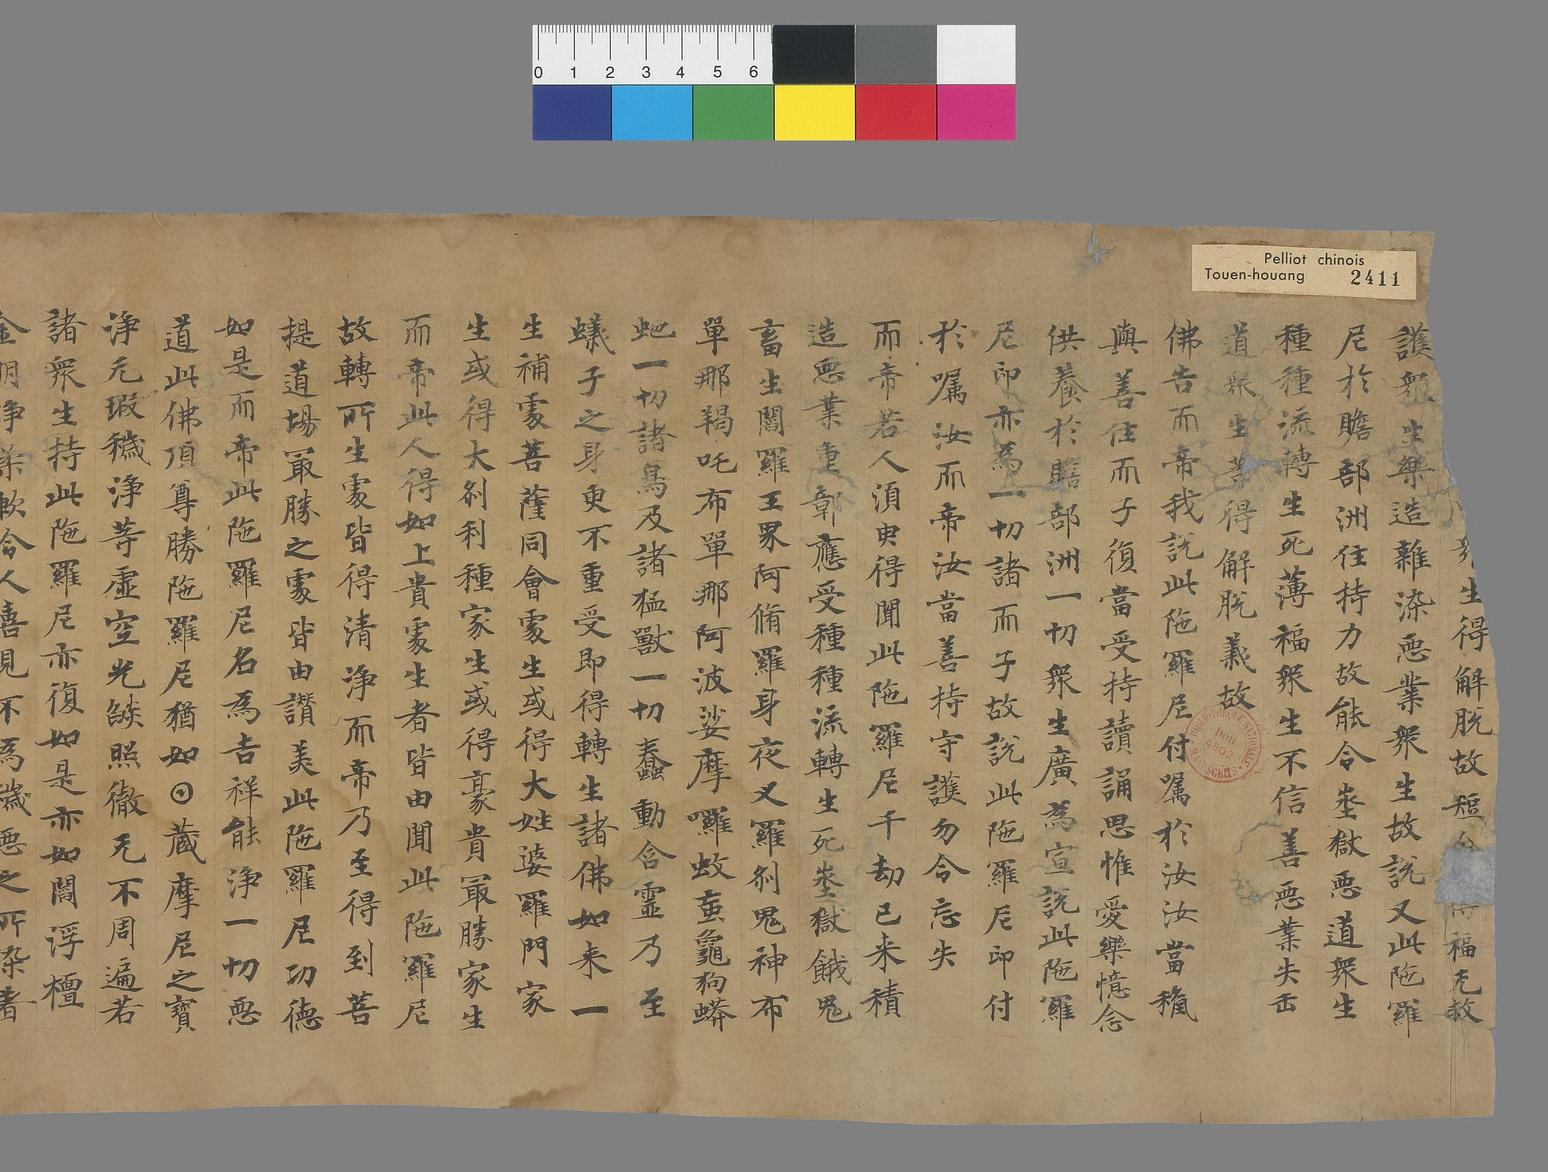 Pelliot chinois
Touen-houang 2411
0 1 2 3 4 5 6
衆生得解脫故短命 福无救
護衆生樂造雜染惡業衆生故說又此陁羅
尼於瞻部洲住持力故能令埊獄惡道衆生
種種流轉生死薄福衆生不信善惡業失㱏
道衆生等得解脫義故
佛告而帝我說此陁羅尼付嘱於汝汝當穐
與善住而子復當受持讀誦思惟愛樂憶念
供養於瞻部洲一切衆生廣為宣說此陁羅
尼印亦為一切諸而子故說此陁羅尼印付
於嘱汝而帝汝當善持守護勿令忘失
而帝若人湏臾得聞此陁羅尼千劫已来積
造惡業重鄣應受種種流轉生死埊獄餓鬼
畜生閻羅王界阿脩羅身夜叉羅剎鬼神布
單那羯吒布單那阿波娑摩囉蚊蝱龜狗蟒
虵一切諸鳥及諸猛獸一切蠢動含靈乃至
蟻子之身更不重受即得轉生諸佛如来一
生補䖏菩薩同會䖏生或得大姓婆羅門家
生或得大剎利種家生或得豪貴冣勝家生
而帝此人得如上貴䖏生者皆由聞此陁羅尼
故轉所生䖏皆得清淨而帝乃至得到菩
提道場冣勝之䖏皆由讃美此陁羅尼功德
如是而帝此陁羅尼名為吉祥能淨一切惡
道此佛頂尊勝陁羅尼猶如〇藏摩尼之寶
淨无瑕穢淨等虛空光燄照徹无不周遍若
諸衆生持此陁羅尼亦復如是亦如閻浮檀
金明淨柔軟令人喜見不為穢惡之所染著